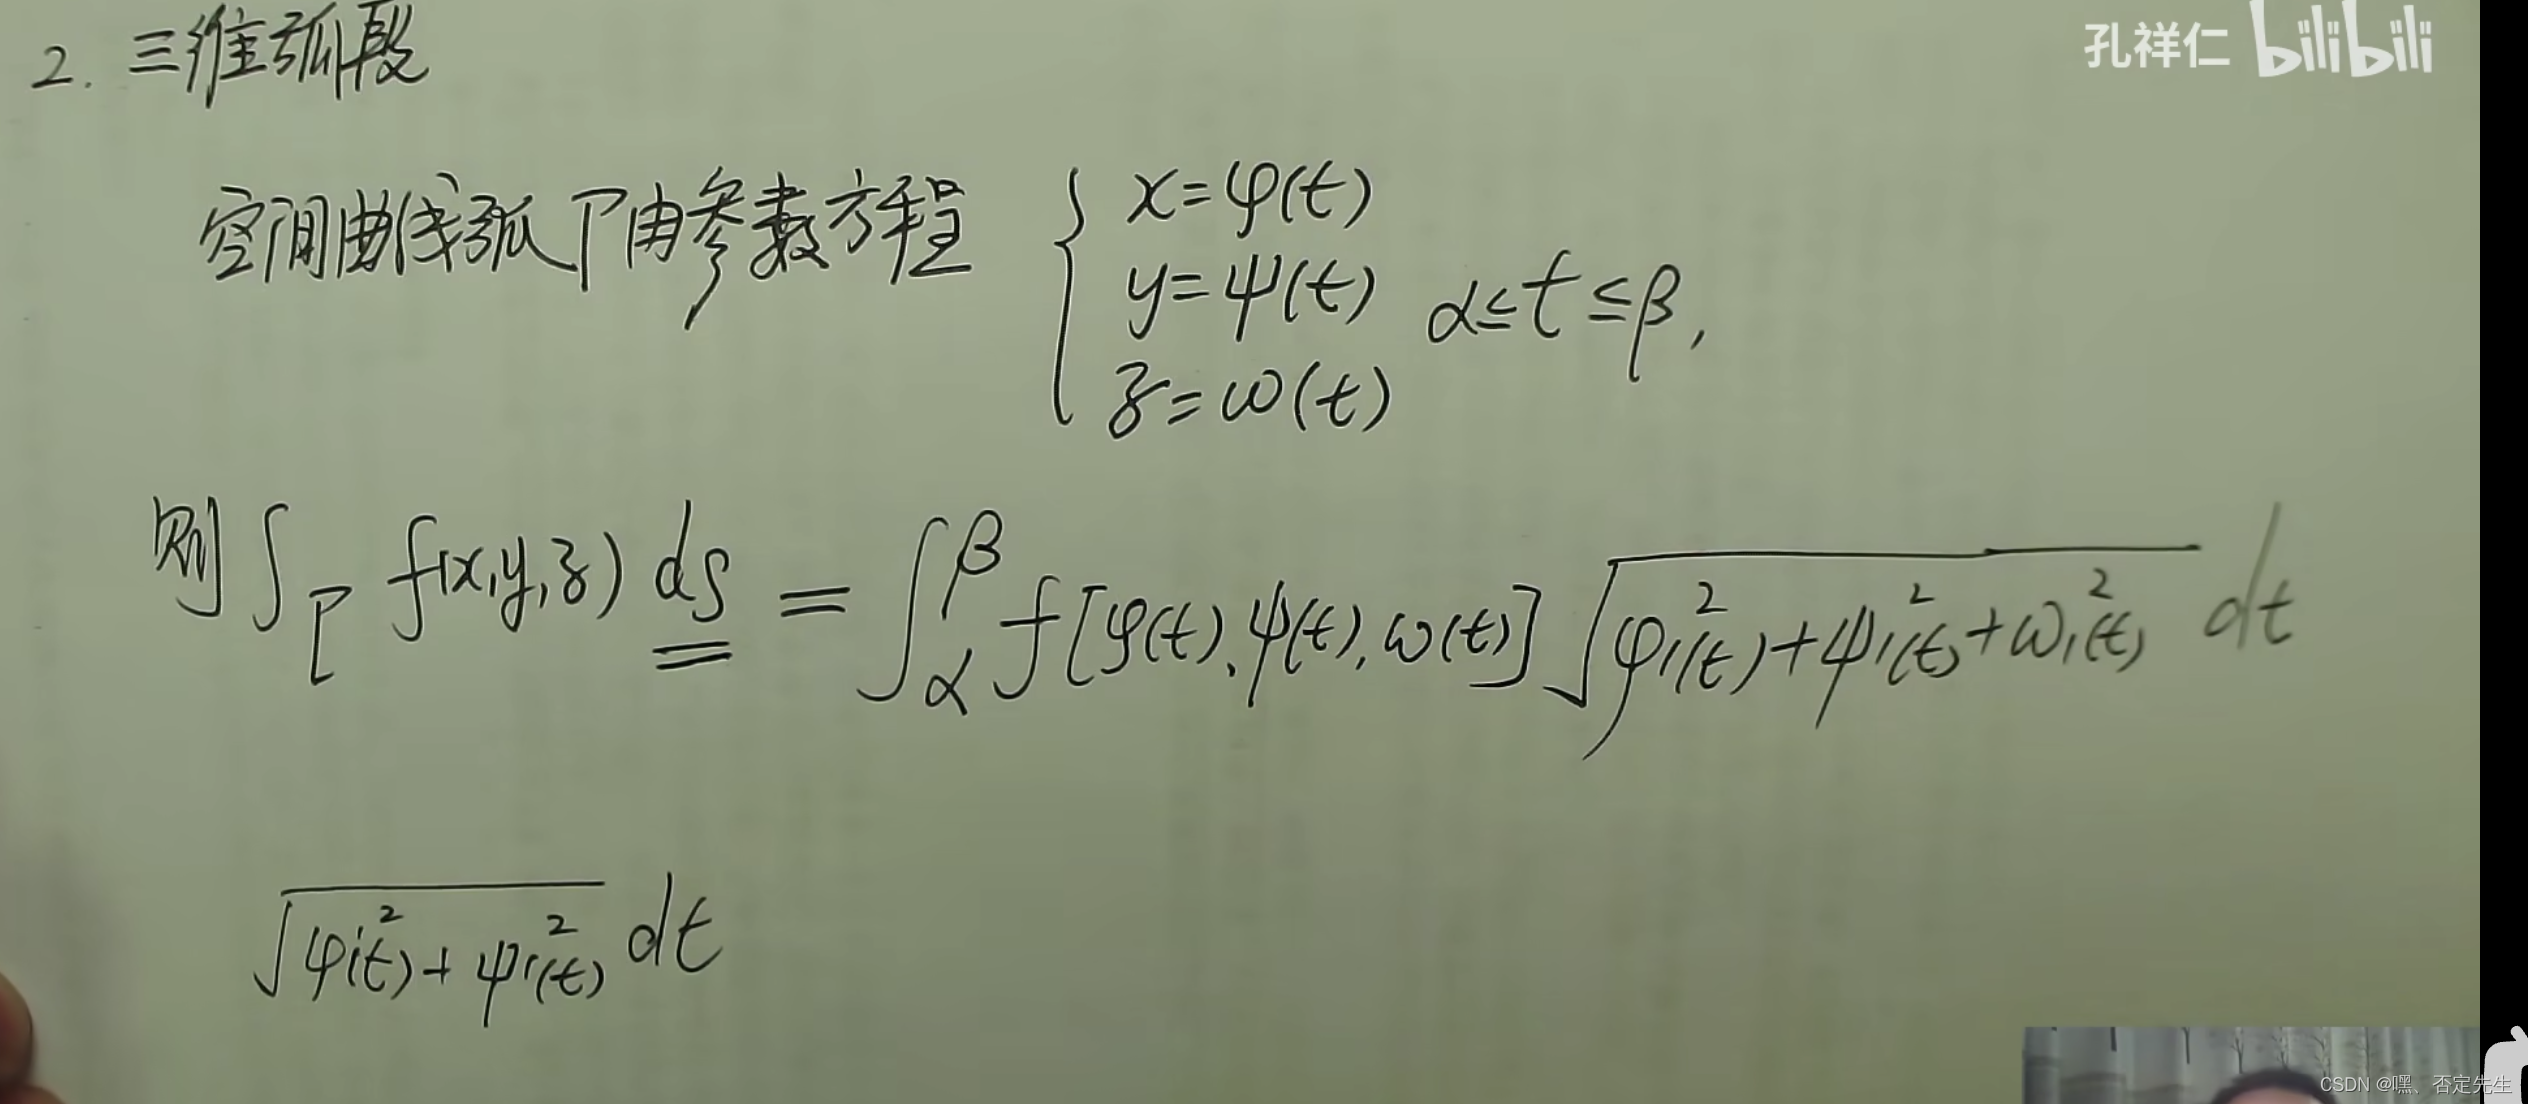 孔祥仁 bilibili
2. 三维弧段
空间曲线弧 Γ由参数方程 { x=φ(t)
y=ψ(t) α≤t≤β,
z=ω(t)
则 ∫_Γ f(x,y,z) ds = ∫_α^β f[φ(t),ψ(t),ω(t)] √(φ'²(t)+ψ'²(t)+ω'²(t)) dt
√(φ'²(t)+ψ'²(t)) dt
CSDN @嘿、否定先生